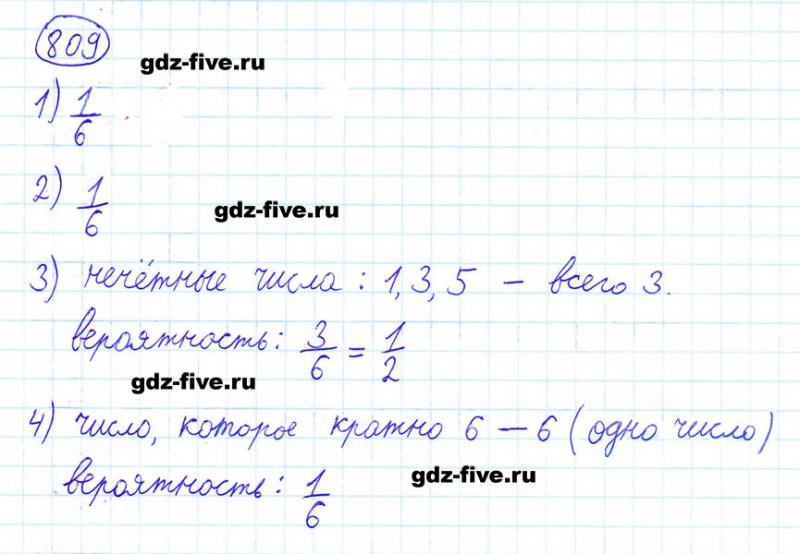 809
gdz-five.ru
1) 1/6
2) 1/6
gdz-five.ru
3) нечётные числа: 1, 3, 5 – всего 3.
вероятность: 3/6 = 1/2
gdz-five.ru
4) число, которое кратно 6 – 6 (одно число)
вероятность: 1/6
gdz-five.ru